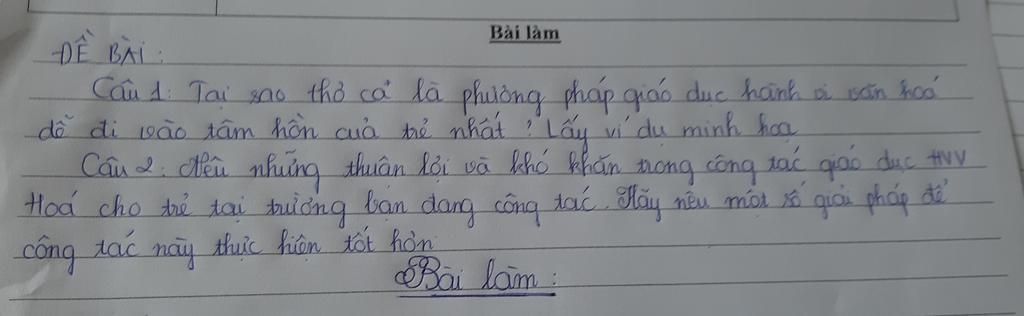 Bài làm
ĐỀ BÀI:
Câu 1: Tại sao thơ ca là phương pháp giáo dục hành vi văn hoá
dễ đi vào tâm hồn của trẻ nhất? Lấy ví dụ minh hoạ
Câu 2: Nêu những thuận lợi và khó khăn trong công tác giáo dục HVV
Hoá cho trẻ tại trường bạn đang công tác. Hãy nêu một số giải pháp để
công tác này thực hiện tốt hơn
Bài làm: